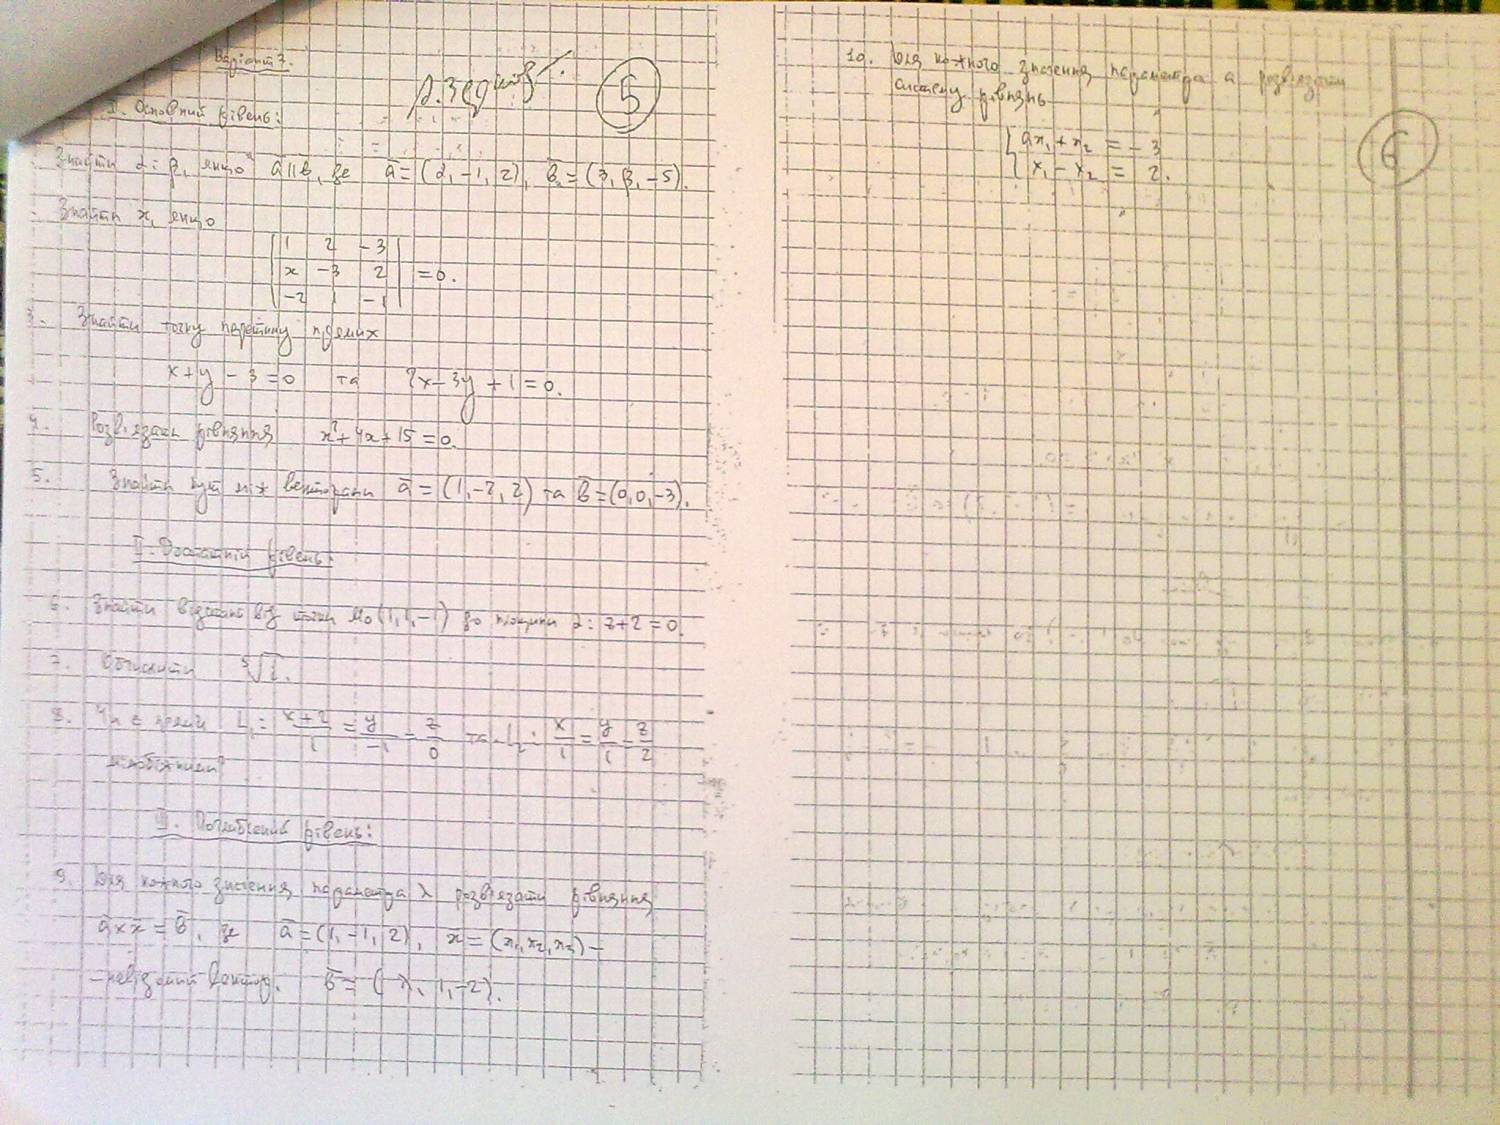 Варіант 7.
5
I. Основний рівень:
Знайти α і β, якщо a̅ || b̅, де a̅ = (α, -1, 2), b̅ = (3, β, -5).
Знайти x, якщо
| 1 2 -3 |
| x -3 2 | = 0.
| -2 1 -1 |
3. Знайти точку перетину прямих
x + y - 3 = 0 та 2x - 3y + 1 = 0.
4. Розв'язати рівняння x² + 4x + 15 = 0.
5. Знайти кут між векторами a̅ = (1, -2, 2) та b̅ = (0, 0, -3).
II. Достатній рівень:
6. Знайти відстань від точки M₀(1, 1, -1) до площини α: z + 2 = 0.
7. Обчислити ⁵√i.
8. Чи є прямі L₁: (x+2)/1 = y/-1 = z/0 та L₂: x/1 = y/1 = z/2
мимобіжними?
III. Поглиблений рівень:
9. Для кожного значення параметра λ розв'язати рівняння
a̅ × x̅ = b̅, де a̅ = (1, -1, 2), x = (x₁, x₂, x₃) –
– невідомий вектор, b̅ = (-λ, 1, -2).
10. Для кожного значення параметра a розв'язати
систему рівнянь
{ ax₁ + x₂ = -3
x₁ - x₂ = 2.
6